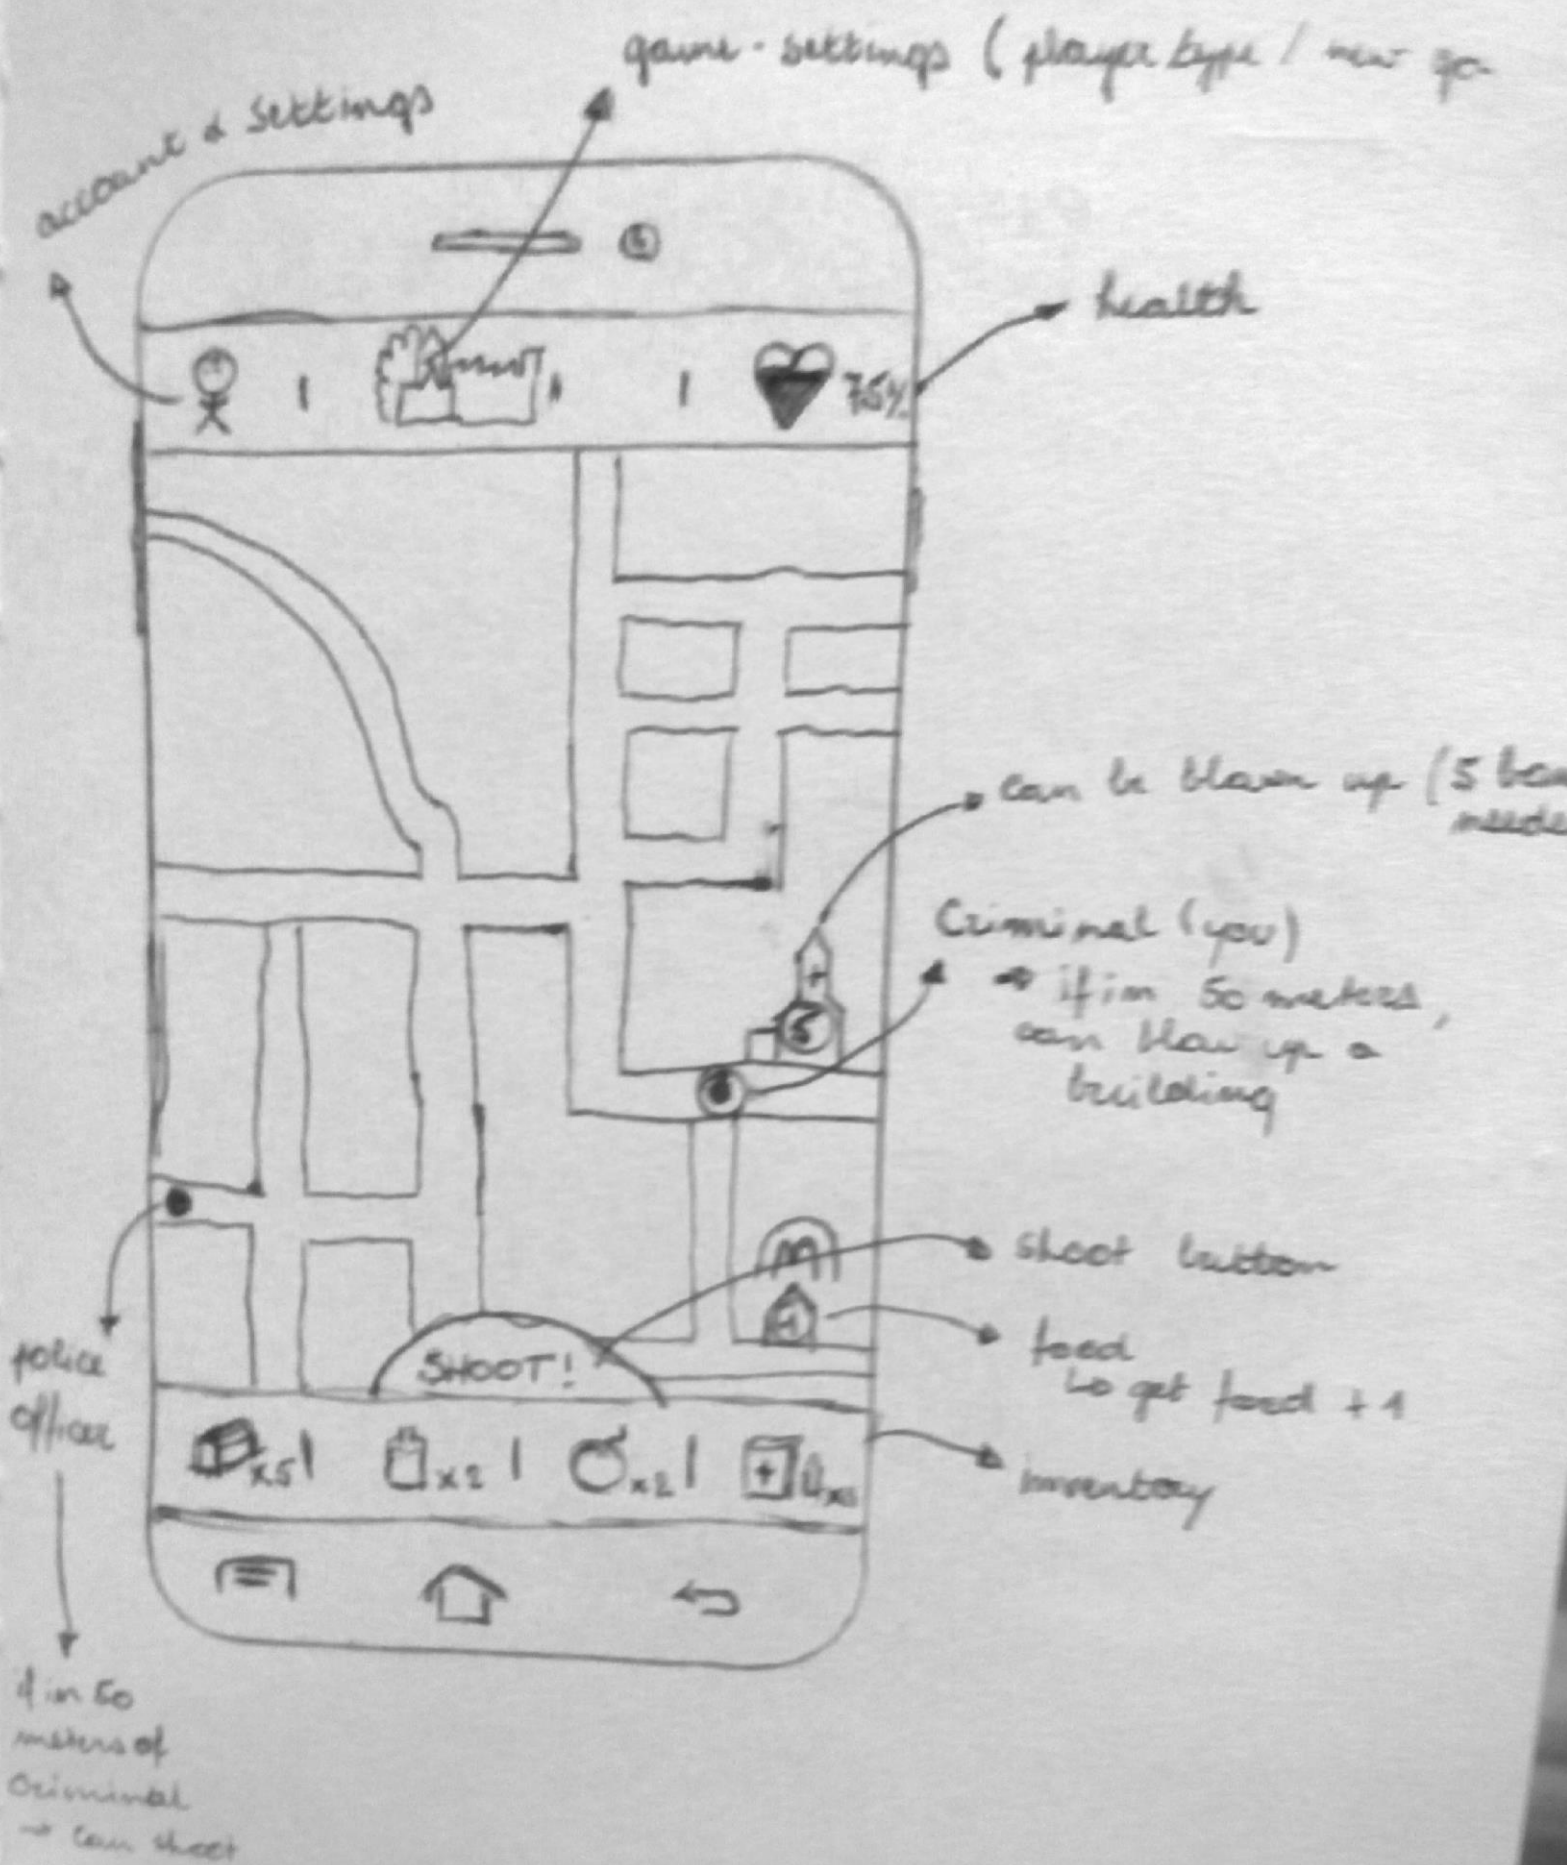 game-settings ( player type / new
account & settings
health
75%
can be blown up (5
needed
Criminal (you)
→ if in 50 meters,
can blow up a
building
5
M
1
shoot button
food
↳ get food + 1
SHOOT!
police
officer
x5 | x2 | x2 |
inventory
if in 50
meters of
Criminal
→ can shoot